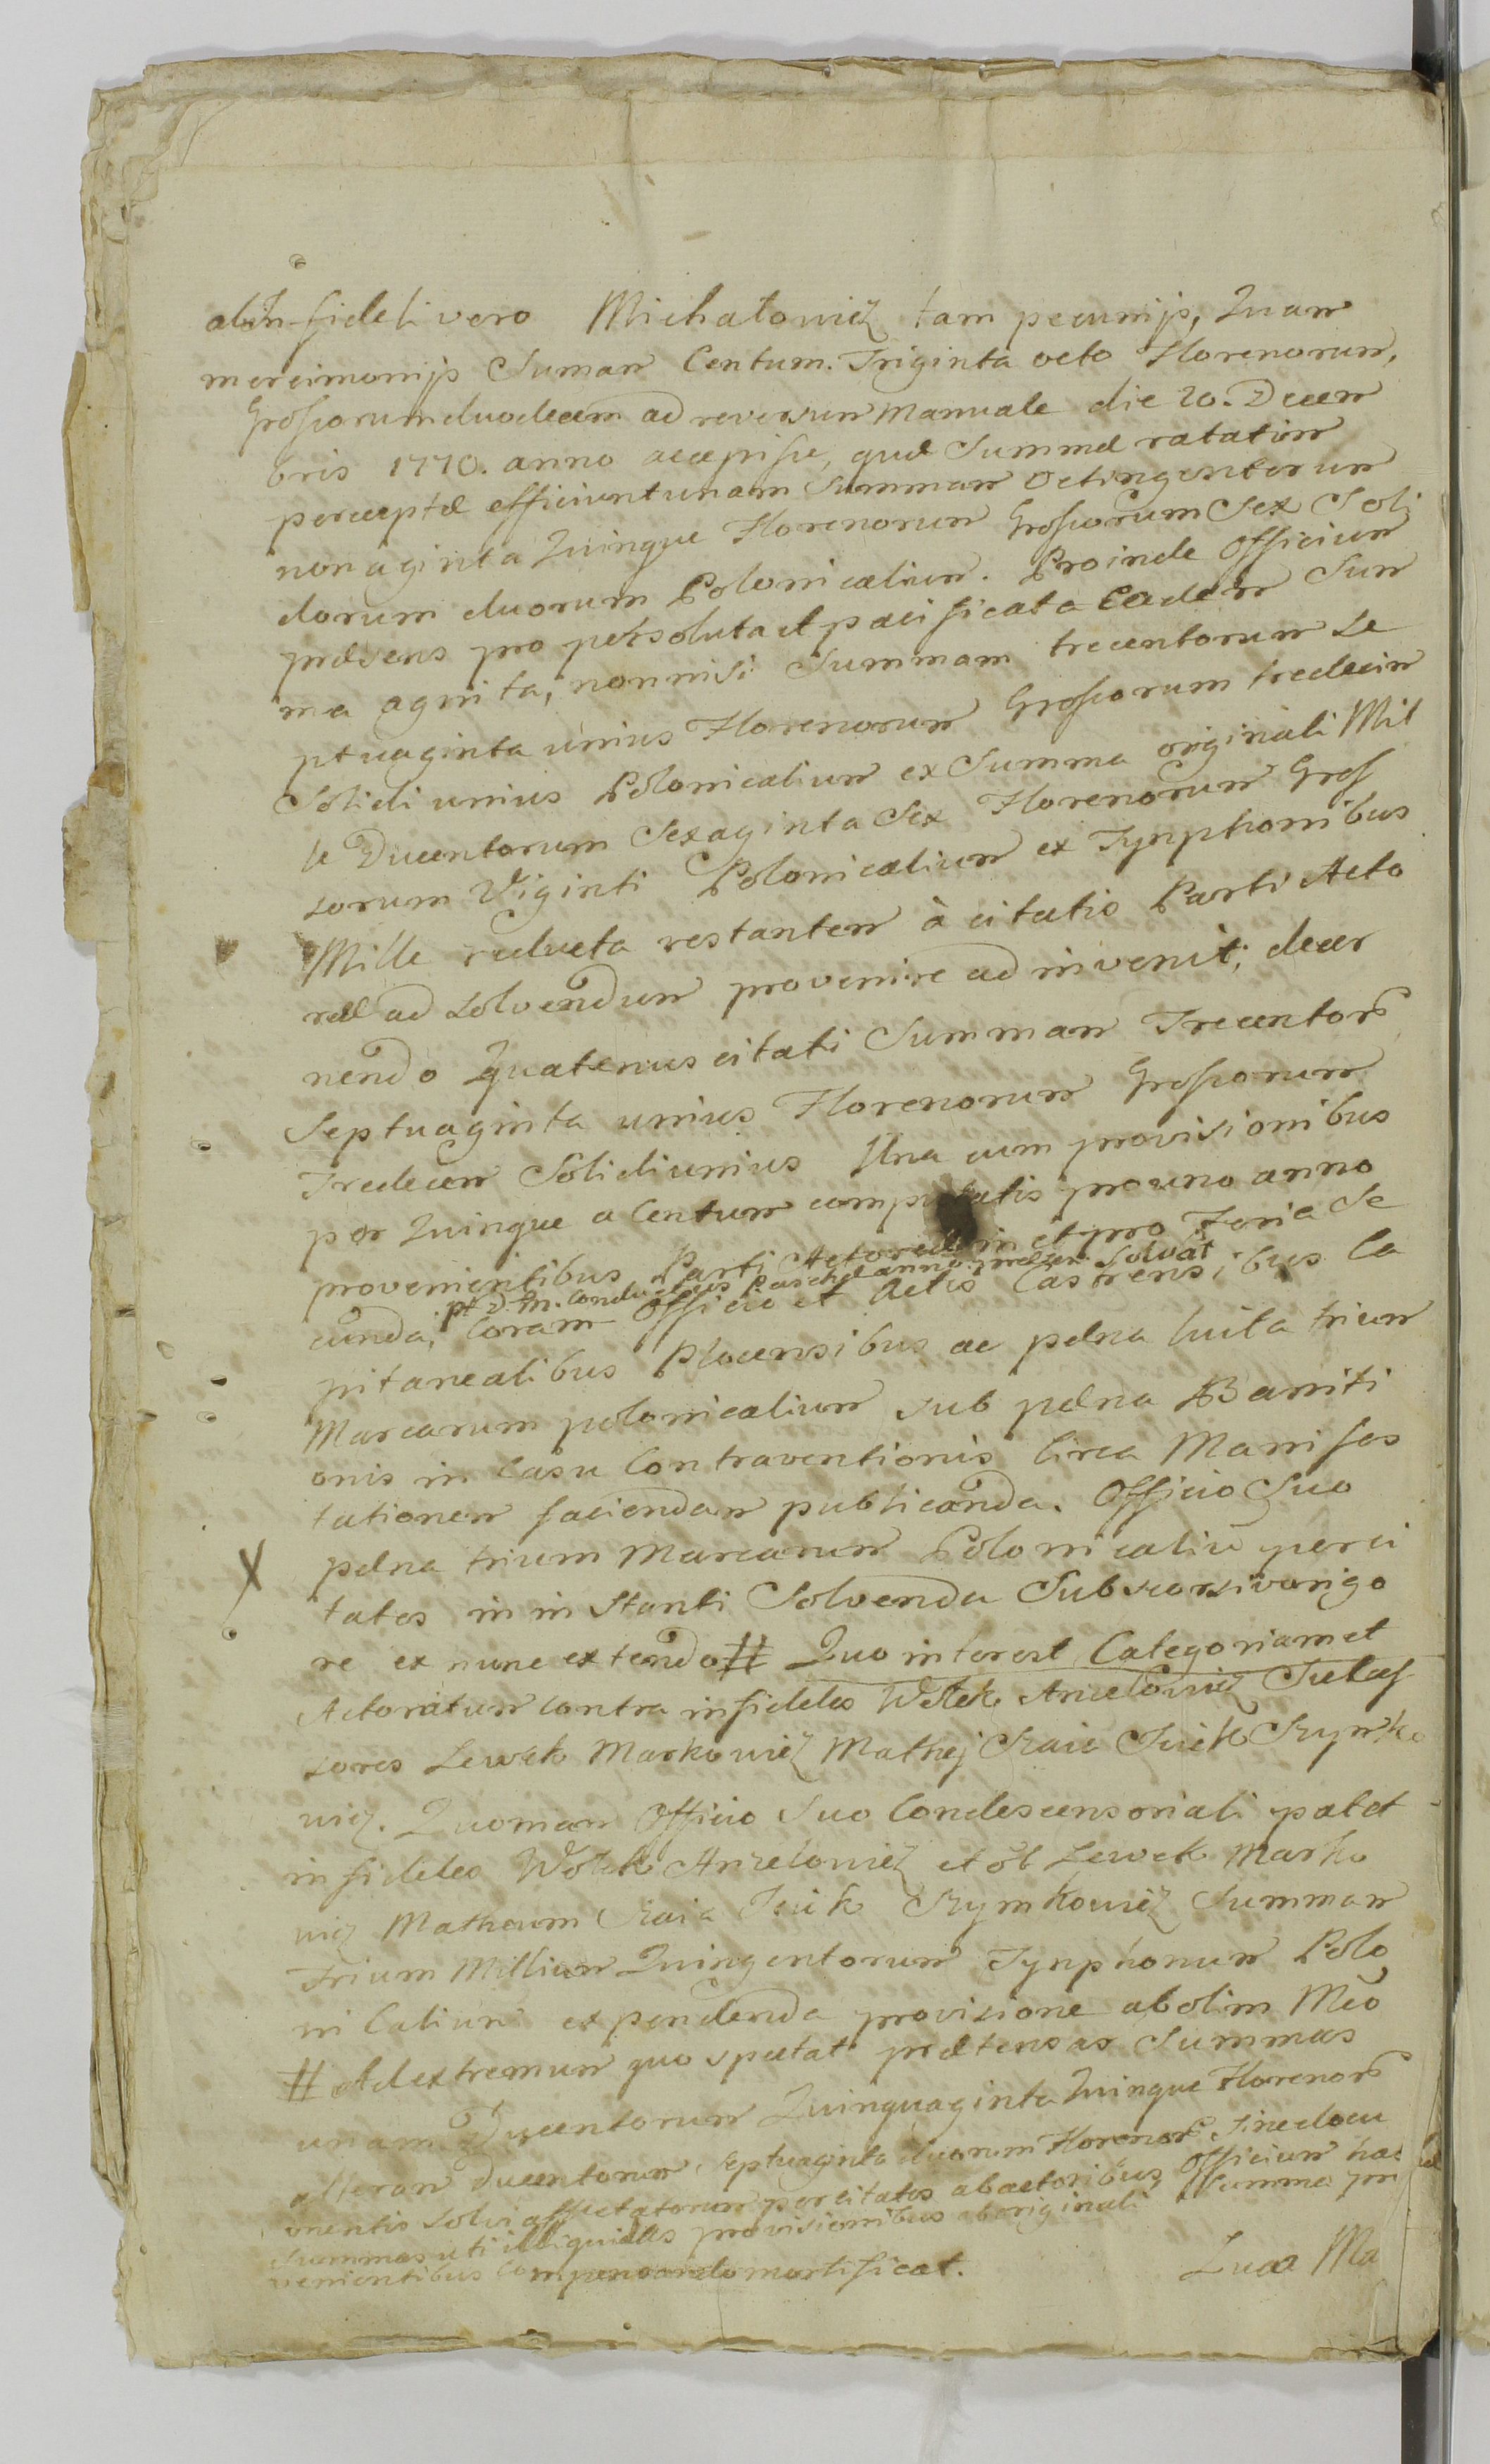 ab Infideli vero Michałowicz tam pecunijs, Quam
mercimonijs Sumam Centum Triginta octo Florenorum,
Grossorum duodecem ad reversum manuale die 20. Decem
bris 1770. anno accepisse, quæ Summæ ratatim
perceptæ efficiunt unam Summam Octingentorum
nonaginta Quinque Florenorum Grossorum Sex Soli
dorum duorum Polonicalium. Proinde Officium
præsens pro persoluta et pacificata Eadem Sum
ma agnita, nonnisi Summam trecentorum Se
ptuaginta unius Florenorum Grossorum tredecim
Solidi unius Polonicalium ex Summa originali Mil
le Ducentorum Sexaginta Sex Florenorum Gros
sorum Viginti Polonicalium ex Tynphonibus
Mille reducta restantem à citatis Parti Acto
reæ ad solvendum provenire adinvenit; decer
nendo Quatenus citati Summam Trecentor
Septuaginta unius Florenorum Grossorum
Tredecem Solidi unius Una cum provisionibus
per Quinque a Centum computatis pro uno anno
provenientibus Parti Actoreæ in et pro Feria Se
pt D. In. Conductus Paschæ anno præsen. Solvat
cunda, Coram Officio et Actis Castrensibus Ca
pitanealibus Plocensibus ac pæna luita trium
Marcarum polonicalium sub pæna Banniti
onis in Casu Contraventionis Circa Manifes
tationem faciendam publicanda. Officio Suo
pæna trium Marcarum Polonicaliũ per ci
tatos in instanti Solvenda Subsecvivo rigo
re ex nunc extendo # Quo interest Categoriam et
Actoratum contra infideles Wolek Anzelowicz Succes
sores Lewek Markowicz Mathej Kaia Icik Szymko
wicz. Quoniam Officio Suo Condescensoriali patet
infideles Wolek Anzelowicz et ol Lewek Marko
wicz Matheum Kaia Icik Szymkowicz Summam
Trium Millium Quingentorum Tynphonum Polo
nicalium expendenda provisione ab olim Mco
# Ad extremum quo spectat prætensas Summas
unam Ducentorum Quinquaginta Quinque Florenor
alteram Ducentorum Septuaginta duorum Florenor. Sine docu
mentis solvi affectatarum per citatos ab actoribus, Officium has
Summas uti illiquidas provisionibus ab originali Summa pro
venientibus Compensando mortificat.
Quæ Ma